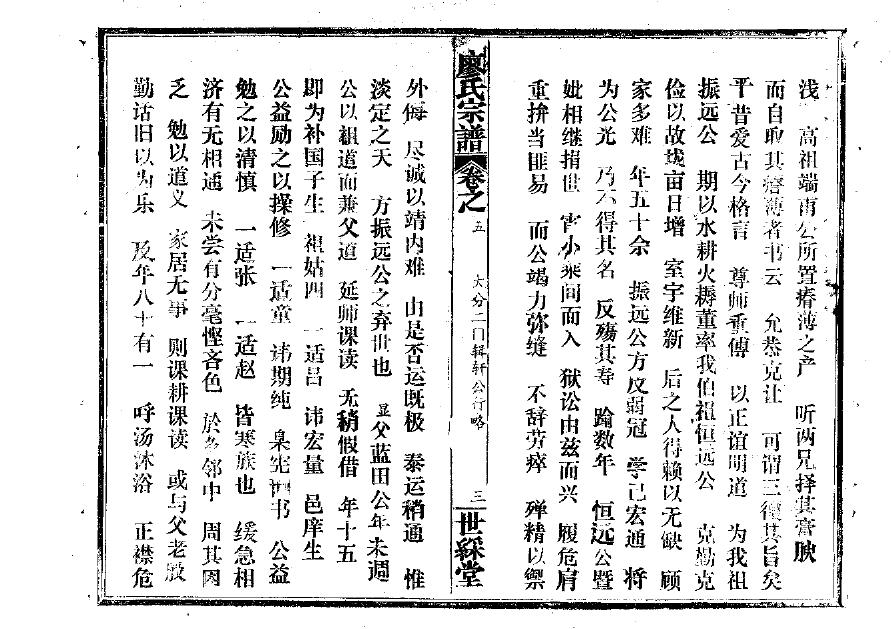 浅 高祖端甫公所置瘠薄之产 听两兄择其膏腴
而自取其瘠薄者书云 允恭克让 可谓三复其旨矣
平昔爱古今格言 尊师重傅 以正谊明道 为我祖
振远公 期以水耕火耨董率我伯祖恒远公 克勤克
俭以故垅亩日增 室宇维新 后之人得赖以无缺 顾
家多难 年五十余 振远公方及弱冠 学已宏通 将
为公光 乃不得其名 反殇其寿 踰数年 恒远公暨
妣相继捐世 宵小乘间而入 狱讼由兹而兴 履危肩
重拚当匪易 而公竭力弥缝 不辞劳瘁 殚精以御
廖氏宗譜 卷之 五 大分二门辑轩公行略 三 世綵堂
外侮 尽诚以靖内难 由是否运既极 泰运稍通 惟
淡定之天 方振远公之弃世也 显父蓝田公年未週
公以祖道而兼父道 延师课读 无稍假借 年十五
即为补国子生 祖姑四 一适吕 讳宏量 邑庠生
公益励之以操修 一适童 讳期纯 臬宪书 公益
勉之以清慎 一适张 一适赵 皆寒族也 缓急相
济有无相通 未尝有分毫悭吝色 於乡邻中 周其困
乏 勉以道义 家居无事 则课耕课读 或与父老殷
勤话旧以为乐 及年八十有一 呼汤沐浴 正襟危